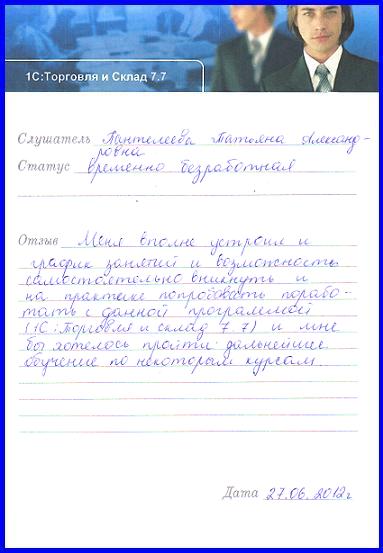 1С:Торговля и Склад 7.7
Слушатель Пантелеева Татьяна Александ-
ровна
Статус временно безработная
Отзыв Меня вполне устроил и
график занятий и возможность
самостоятельно вникнуть и
на практике попробовать порабо-
тать с данной программой
(1С:Торговля и склад 7.7) и мне
бы хотелось пройти дальнейшее
обучение по некоторым курсам.
Дата 27.06.2012г